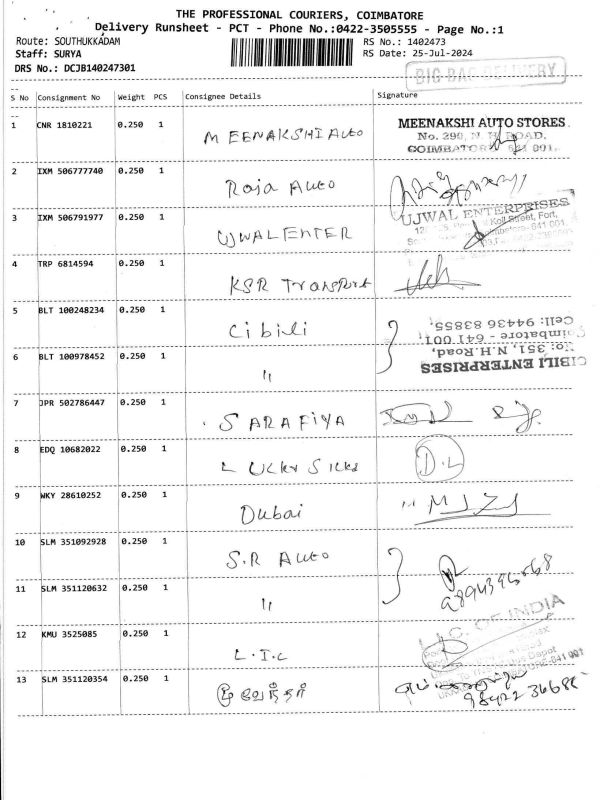 THE PROFESSIONAL COURIERS, COIMBATORE
Delivery Runsheet - PCT - Phone No.:0422-3505555 - Page No.:1
Route: SOUTHUKKADAM RS No.: 1402473
Staff: SURYA RS Date: 25-Jul-2024
DRS No.: DCJB140247301
BIG BAG DELIVERY
S No Consignment No Weight PCS Consignee Details Signature
1 CNR 1810221 0.250 1 MEENAKSHI Auto MEENAKSHI AUTO STORES
No. 290, N. H. ROAD,
COIMBATORE 641 001.
2 IXM 506777740 0.250 1 Raja Auto
3 IXM 506791977 0.250 1 UJWAL ENTER UJWAL ENTERPRISES
Street, Fort,
4 TRP 6814594 0.250 1 KSR Transport
5 BLT 100248234 0.250 1 Cibili
6 BLT 100978452 0.250 1 "
CIBILI ENTERPRISES
No: 351, N.H.Road,
Coimbatore - 641 001
Cell: 94436 83855,
7 JPR 502786447 0.250 1 SARAFIYA
8 EDQ 10682022 0.250 1 Lucky Silks D.L
9 WKY 28610252 0.250 1 Dubai
10 SLM 351092928 0.250 1 S.R Auto
11 SLM 351120632 0.250 1 "
12 KMU 3525085 0.250 1 L.I.C L.I.C. OF INDIA
13 SLM 351120354 0.250 1 மூவேந்தர்